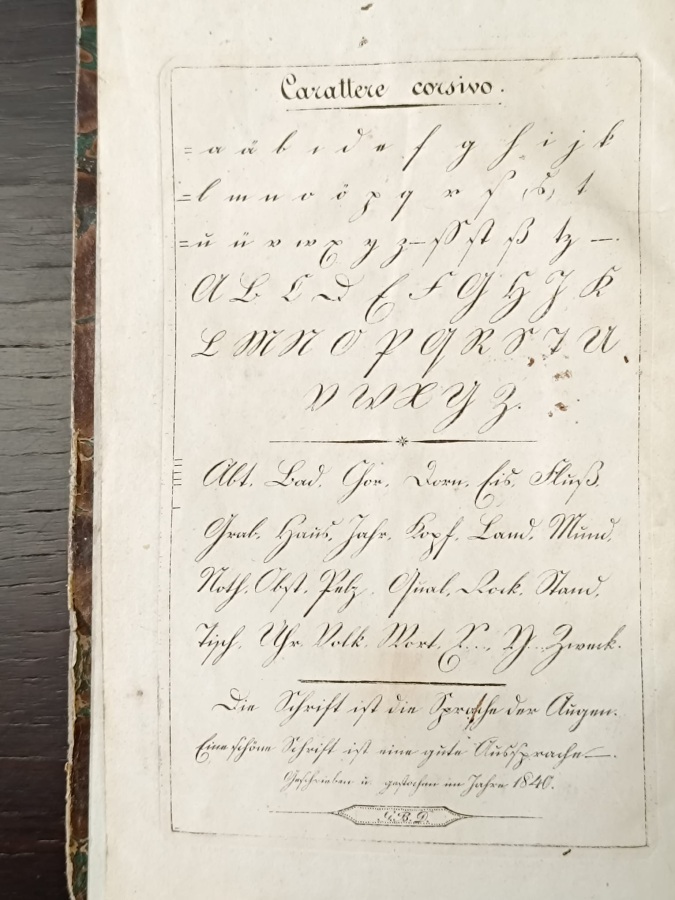 Carattere corsivo.
= a ä b c d e f g h i j k
= l m n o ö p q r ſ (s) t
= u ü v w x y z — ſſ ſt ß tz —.
A B C D E F G H I K
L M N O P Q R S T U
V W X Y Z.
Abt. Bad. Chor. Dorn. Eis. Fluß.
Grab. Haus. Jahr. Kopf. Land. Mund.
Noth. Obst. Pelz. Qual. Rock. Stand.
Tisch. Uhr. Volk. Wort. X... Y... Zweck.
Die Schrift ist die Sprache der Augen.
Eine schöne Schrift ist eine gute Aussprache —.
Geschrieben u. gestochen im Jahre 1840.
C. B. D.